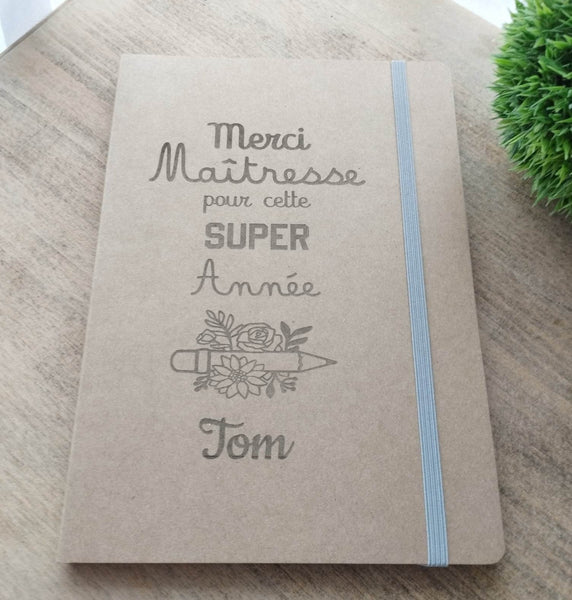 Merci
Maîtresse
pour cette
SUPER
Année
Tom